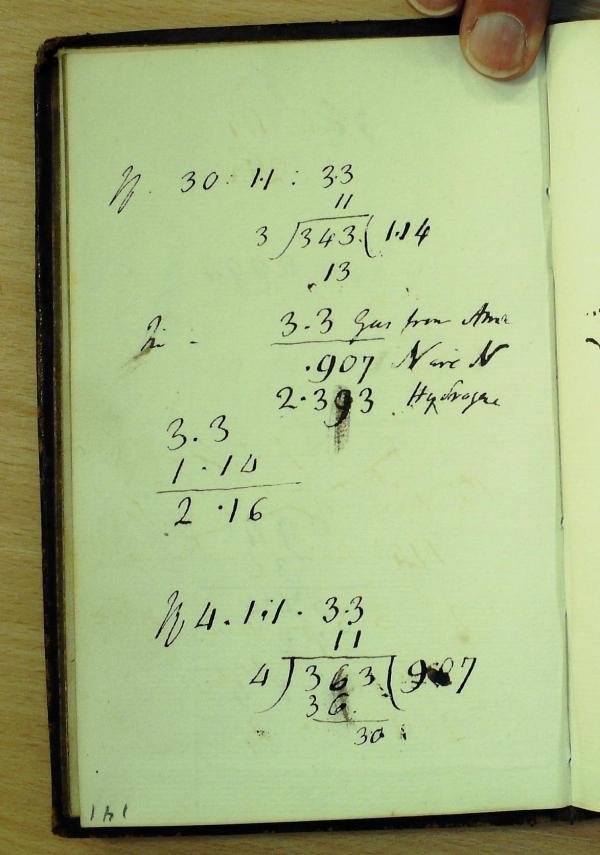 If 30 : 1.1 : 3.3
11
3 ) 343 ( 1.14
.13
3.3 Gas from
.907 N
2.393 Hydrogene
3.3
1.14
2.16
If 4. 1.1. 3.3
11
4 ) 363 ( 907
36
30
141